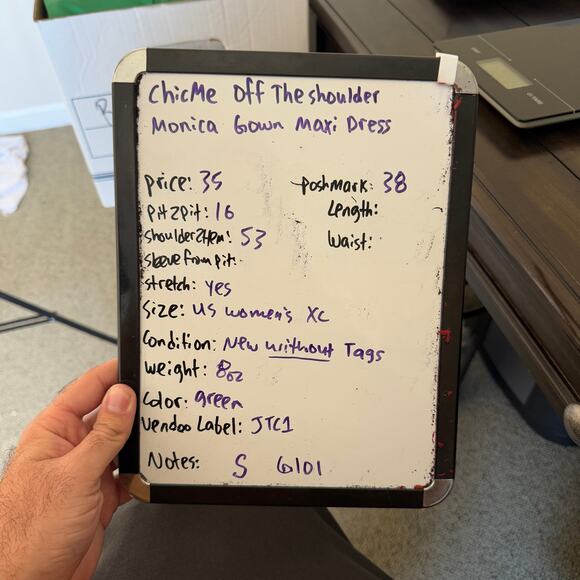 ChicMe Off The shoulder
Monica Gown Maxi Dress
price: 35
poshmark: 38
pit2pit: 16
Length:
shoulder2Hem: 53
Waist:
sleeve from pit:
stretch: yes
Size: US women's XL
Condition: New without Tags
weight: 8oz
Color: green
Vendoo Label: JTC1
Notes: S 6101